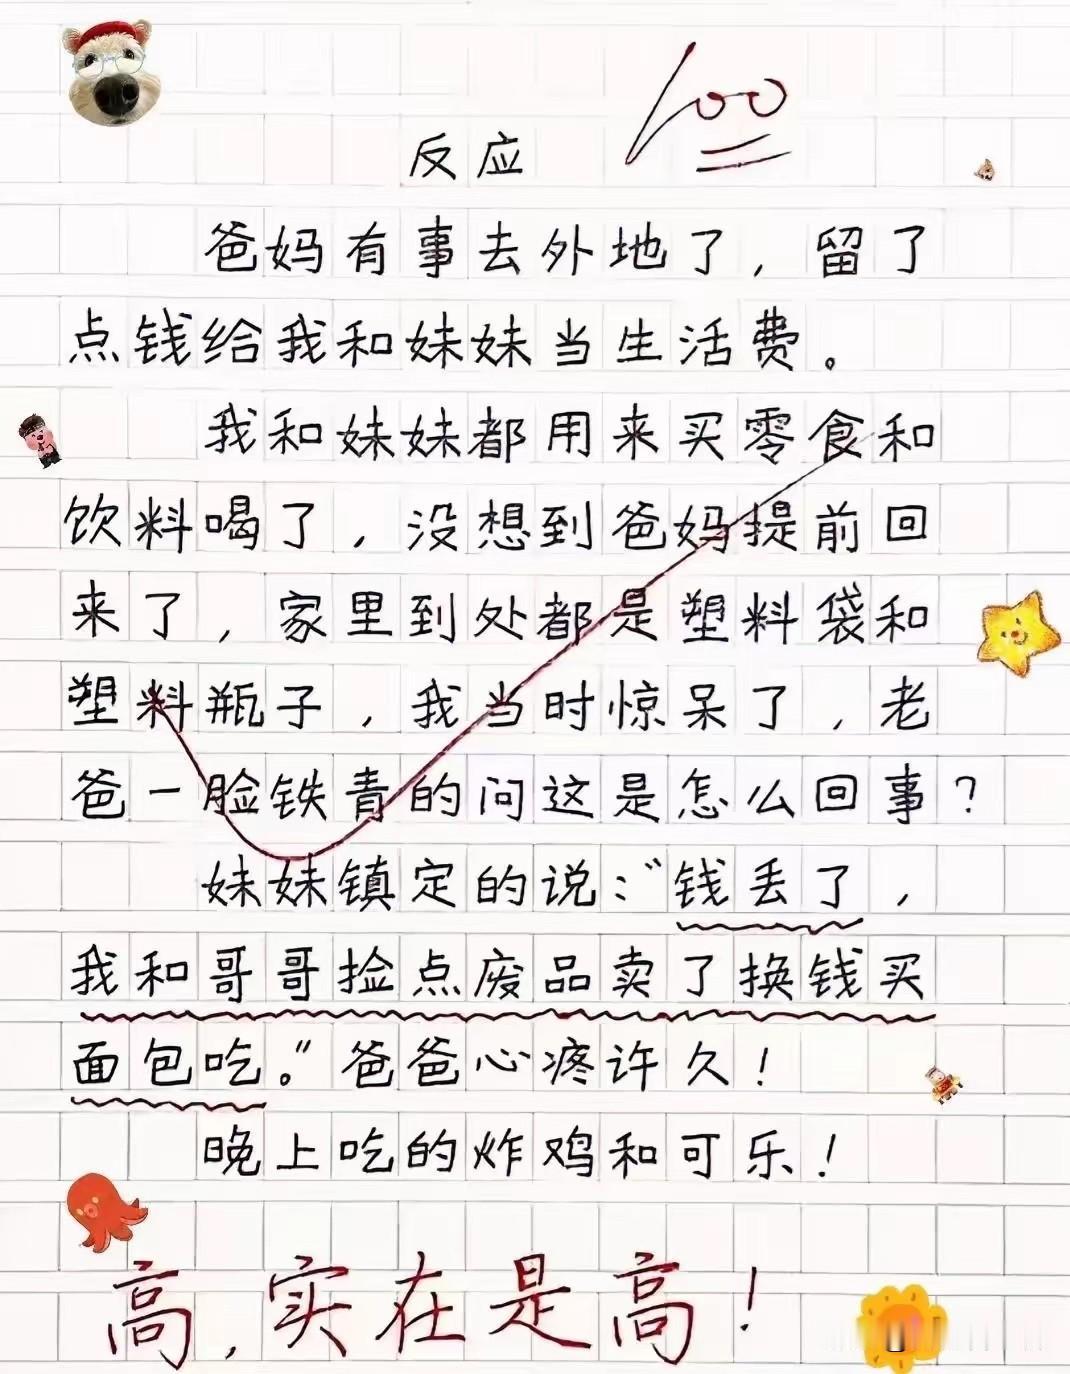 100
反应
爸妈有事去外地了，留了
点钱给我和妹妹当生活费。
我和妹妹都用来买零食和
饮料喝了，没想到爸妈提前回
来了，家里到处都是塑料袋和
塑料瓶子，我当时惊呆了，老
爸一脸铁青的问这是怎么回事？
妹妹镇定的说：“钱丢了，
我和哥哥捡点废品卖了换钱买
面包吃。”爸爸心疼许久！
晚上吃的炸鸡和可乐！
高，实在是高！